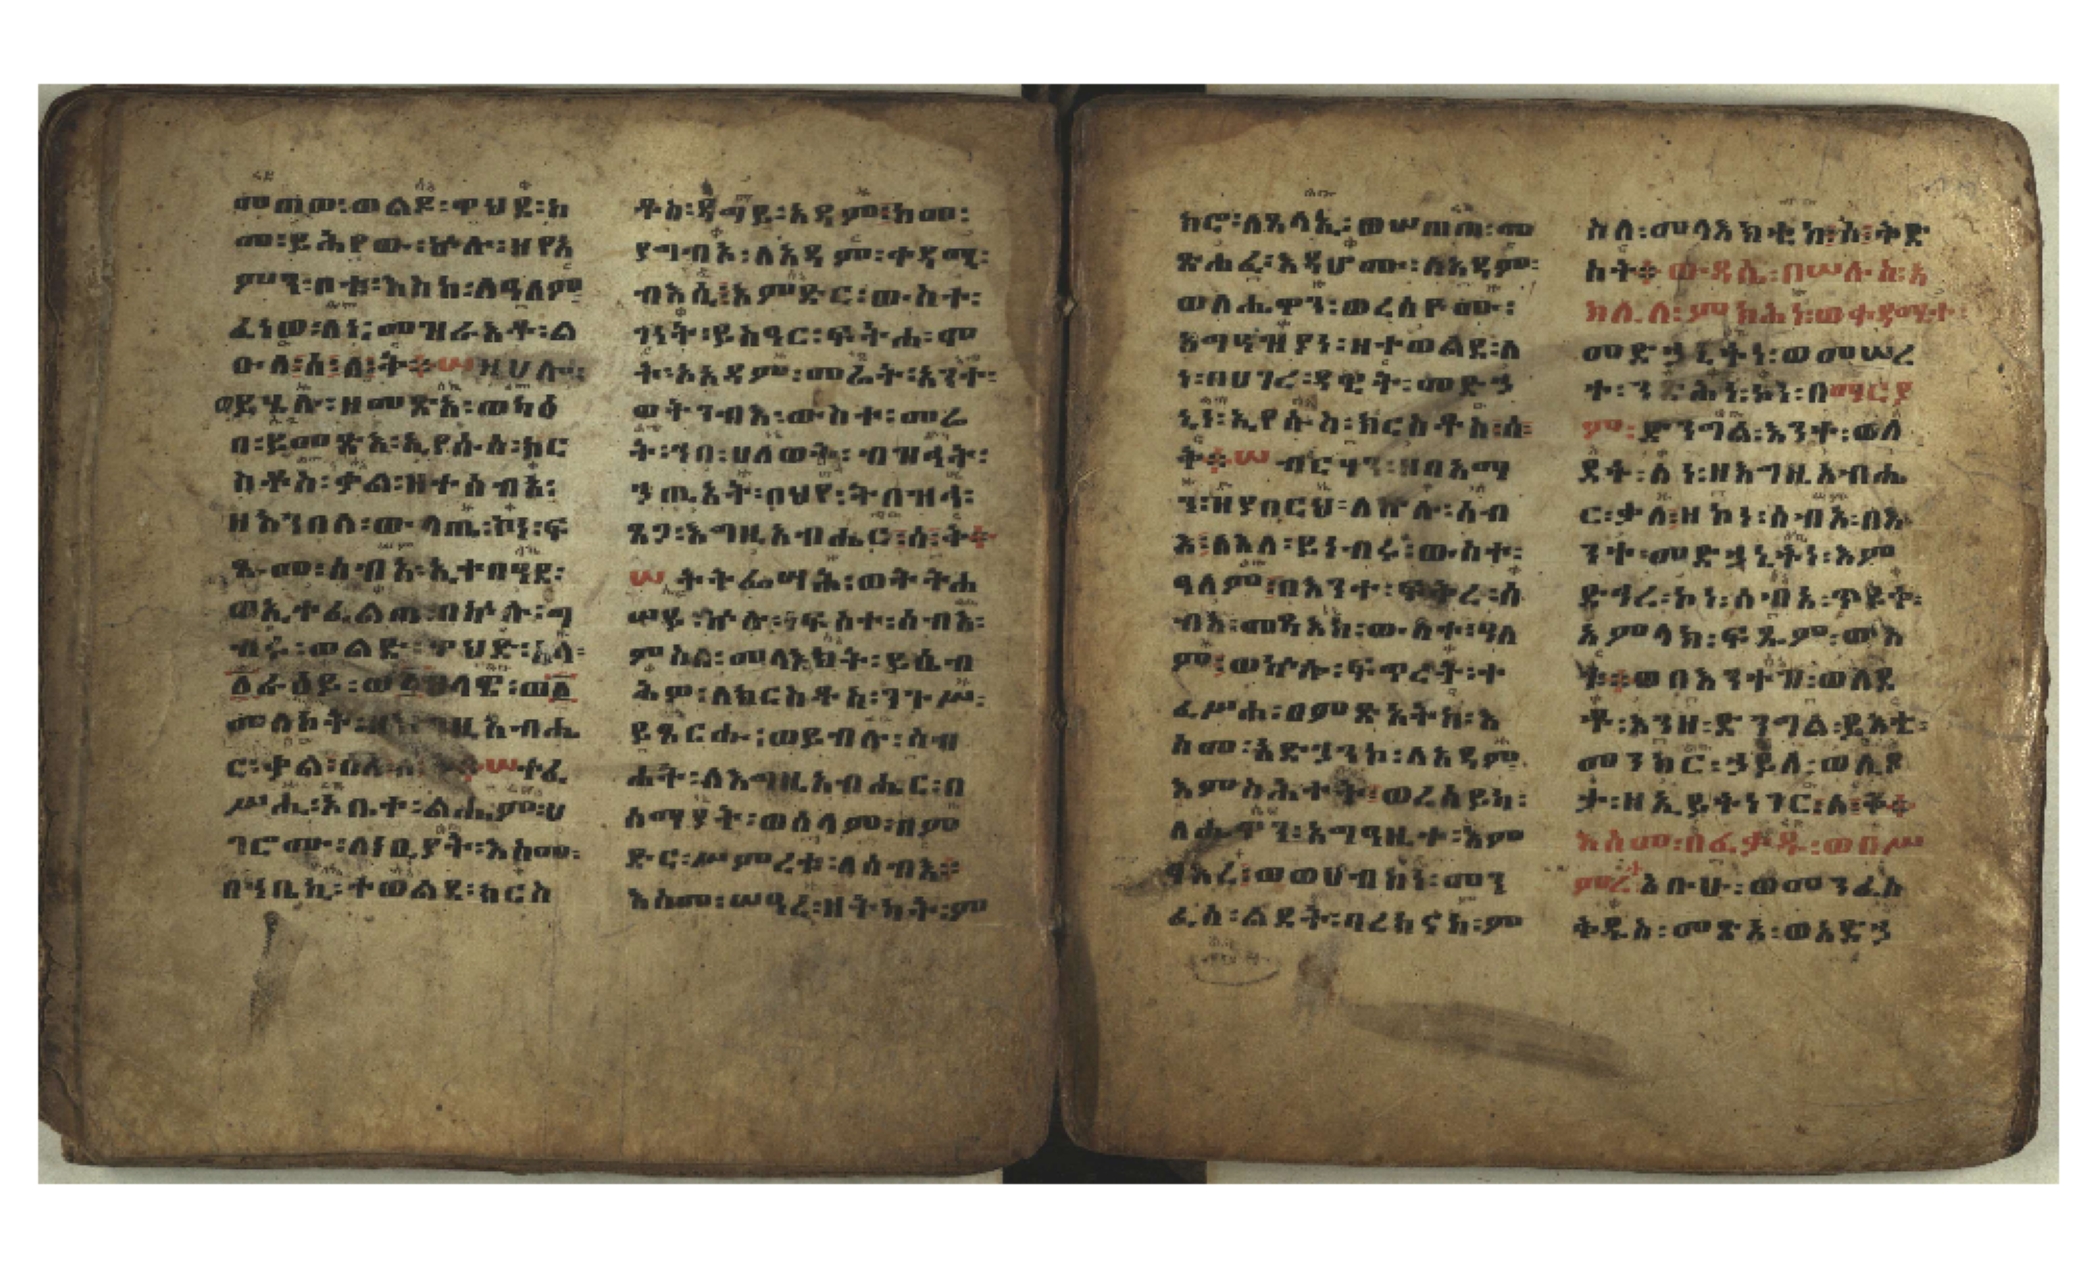 መጠወ፡ወልዶ፡ዋህደ፡ከ
መ፡ይሕየው፡ኵሉ፡ዘየአ
ምን፡ቦቱ፡እስከ፡ለዓለም
ፈነወ፡ለነ፡መዝራእቶ፡ል
ዑለ፡ሰ፡ለ፡ት፨ሠ፡ዘሀሎ፡
ወይሄሉ፡ዘመጽአ፡ወካዕ
በ፡ይመጽእ፡ኢየሱስ፡ክር
ስቶስ፡ቃል፡ዘተሰብአ፡
ዘእንበለ፡ውላጤ፡ኮነ፡ፍ
ጹመ፡ሰብአ፡ኢተበዓደ፡
ወኢተፈልጠ፡በኵሉ፡ግ
ብሩ፡ወልድ፡ዋህድ፡አላ፡
መለኮት፡ዘእግዚአብሔ
ር፡ቃል፡ ፨ሠ፡ተፈ
ሥሒ፡ቤተ፡ልሔም፡ሀ
ገሮሙ፡ለነቢያት፡እስመ፡
በኀቤኪ፡ተወልደ፡ክርስ
ቶስ፡ዳግይ፡አዳም፡ከመ፡
ያግብኦ፡ለአዳም፡ቀዳሚ፡
ብእሲ፡እምድር፡ውስተ፡
ገነት፡ይስዓር፡ፍትሐ፡ሞ
ት፡ኦአዳም፡መሬት፡አንተ፡
ወትገብእ፡ውስተ፡መሬ
ት፡ኀበ፡ሀለወት፡ብዝኅት፡
ኃጢአት፡በህየ፡ትበዝኅ፡
ጸጋ፡እግዚአብሔር፡ሰ፡ት፨
ሠ፡ትትፌሣሕ፡ወትትሐ
ሠይ፡ኵሉ፡ነፍስተ፡ሰብእ፡
ምስለ፡መላእክት፡ይሴብ
ሕዎ፡ለክርስቶስ፡ንጉሥ፡
ይጸርሑ፡ወይብሉ፡ስብ
ሐት፡ለእግዚአብሔር፡በ
ሰማያት፡ወሰላም፡በም
ድር፡ሥምረቱ፡ለሰብእ፨
እስመ፡ሠዓረ፡ዘትካት፡ም
ክሮ፡ለጸላኢ፡ወሠጠጠ፡መ
ጽሐፈ፡እዳሆሙ፡ለአዳም፡
ወለሔዋን፡ወረሰዮሙ፡
አግዓዝያነ፡ዘተወልደ፡ለ
ነ፡በሀገረ፡ዳዊት፡መድኃ
ኒነ፡ኢየሱስ፡ክርስቶስ፡ሰ፡
ት፨ሠ፡ብርሃን፡ዘበአማ
ን፡ዘያበርህ፡ለኵሉ፡ሰብ
እ፡ለእለ፡ይነብሩ፡ውስተ፡
ዓለም፡በእንተ፡ፍቅረ፡ሰ
ብእ፡መጻእከ፡ውስተ፡ዓለ
ም፡ወኵሉ፡ፍጥረት፡ተ
ፈሥሐ፡በምጽአትከ፡እ
ስመ፡አድኃንኮ፡ለአዳም
እምስሕተት፡ወረሰይካ፡
ለሔዋን፡አግዓዚተ፡እም
ፃእረ፡ወወሀብከነ፡መን
ፈሰ፡ልደት፡ባረከናከ፡ም
ስለ፡መላእክቲከ፡ሕ፡ትድ
ስት፨ውዳሴ፡በሠሉስ፡አ
ክሊለ፡ምክሕነ፡ወቀዳሚተ፡
መድኃኒትነ፡ወመሠረ
ተ፡ንጽሕነ፡ኮነ፡በማርያ
ም፡ድንግል፡እንተ፡ወለ
ደት፡ለነ፡ዘእግዚአብሔ
ር፡ቃለ፡ዘኮነ፡ሰብአ፡በእ
ንተ፡መድኃኒትነ፡እም
ድኅረ፡ኮነ፡ሰብአ፡ጥዩቀ፡
አምላክ፡ፍጹም፡ውእ
ቱ፡ወበእንተዝ፡ወለደ
ቶ፡እንዘ፡ድንግል፡ይእቲ፡
መንክር፡ኃይለ፡ወሊዶ
ታ፡ዘኢይትነገር፡ሰ፡ቅ፨
እስመ፡በፈቃዱ፡ወበሥ
ምረ፡አቡሁ፡ወመንፈስ
ቅዱስ፡መጽአ፡ወአድኃ